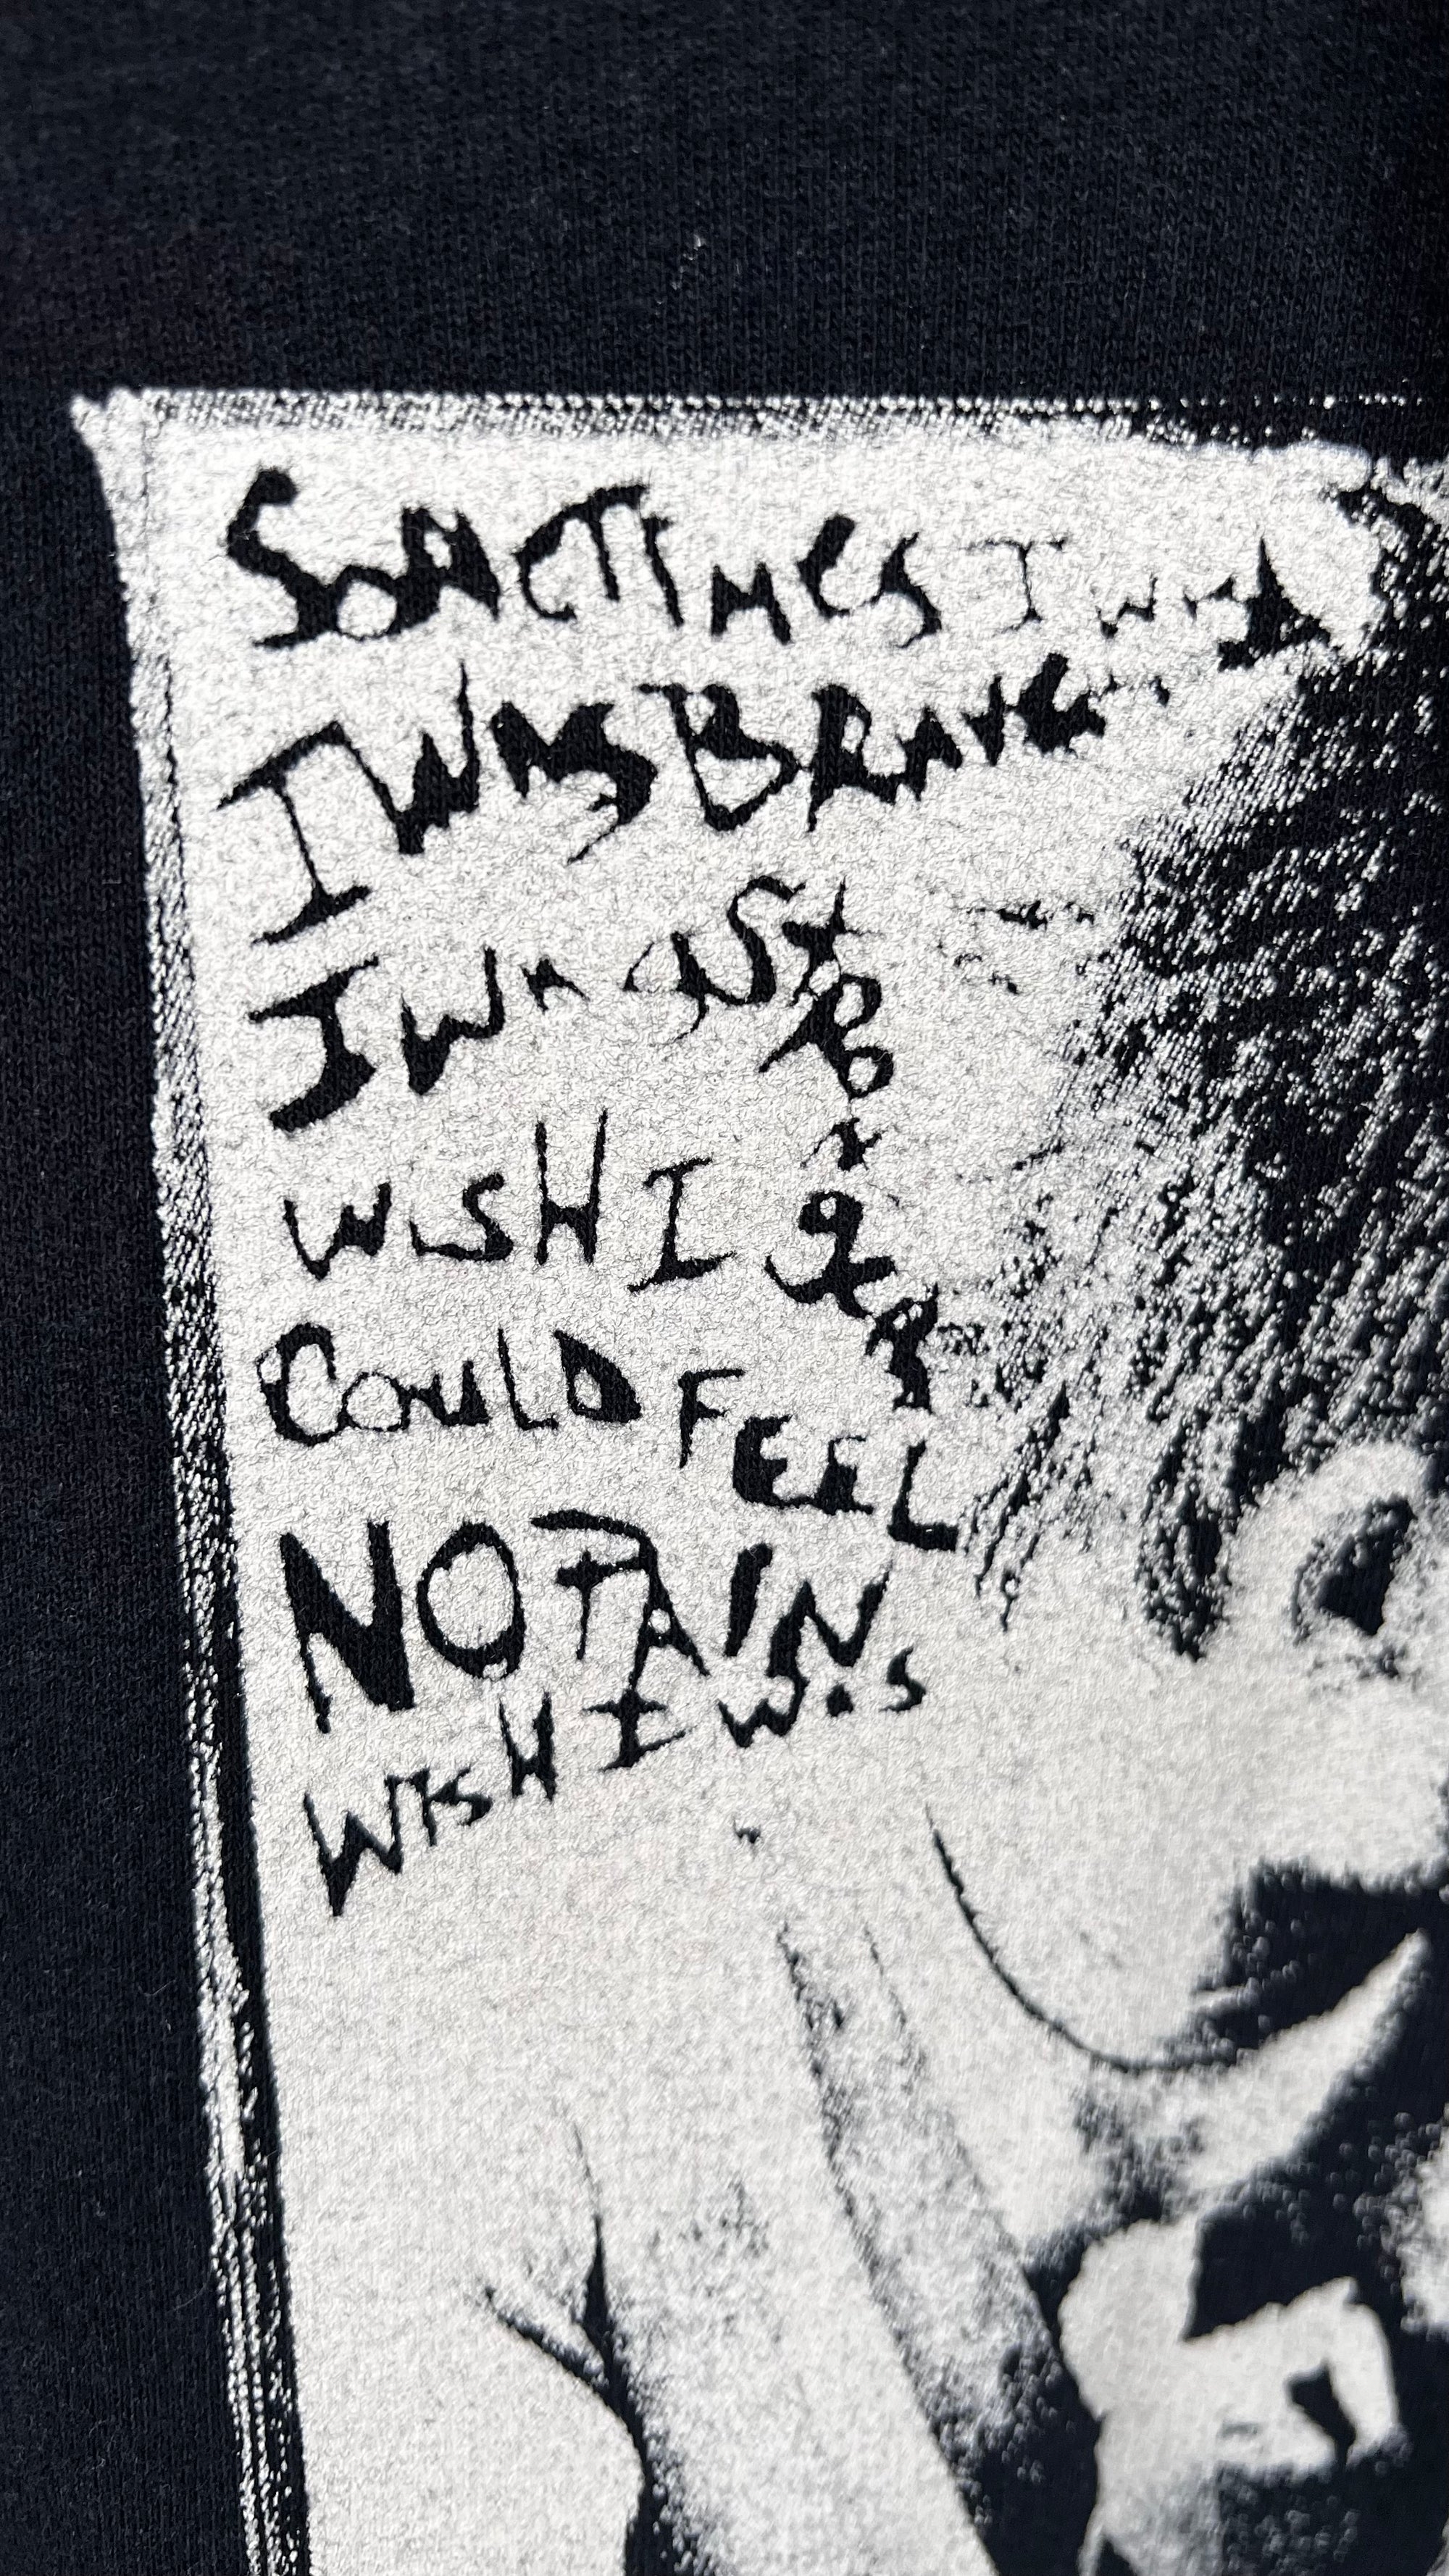 SOMETIMES I WISH
I WAS BRAVE
I WAS STRONgeR
WISH I
COULD FEEL
NO PAIN
WISH I WAS